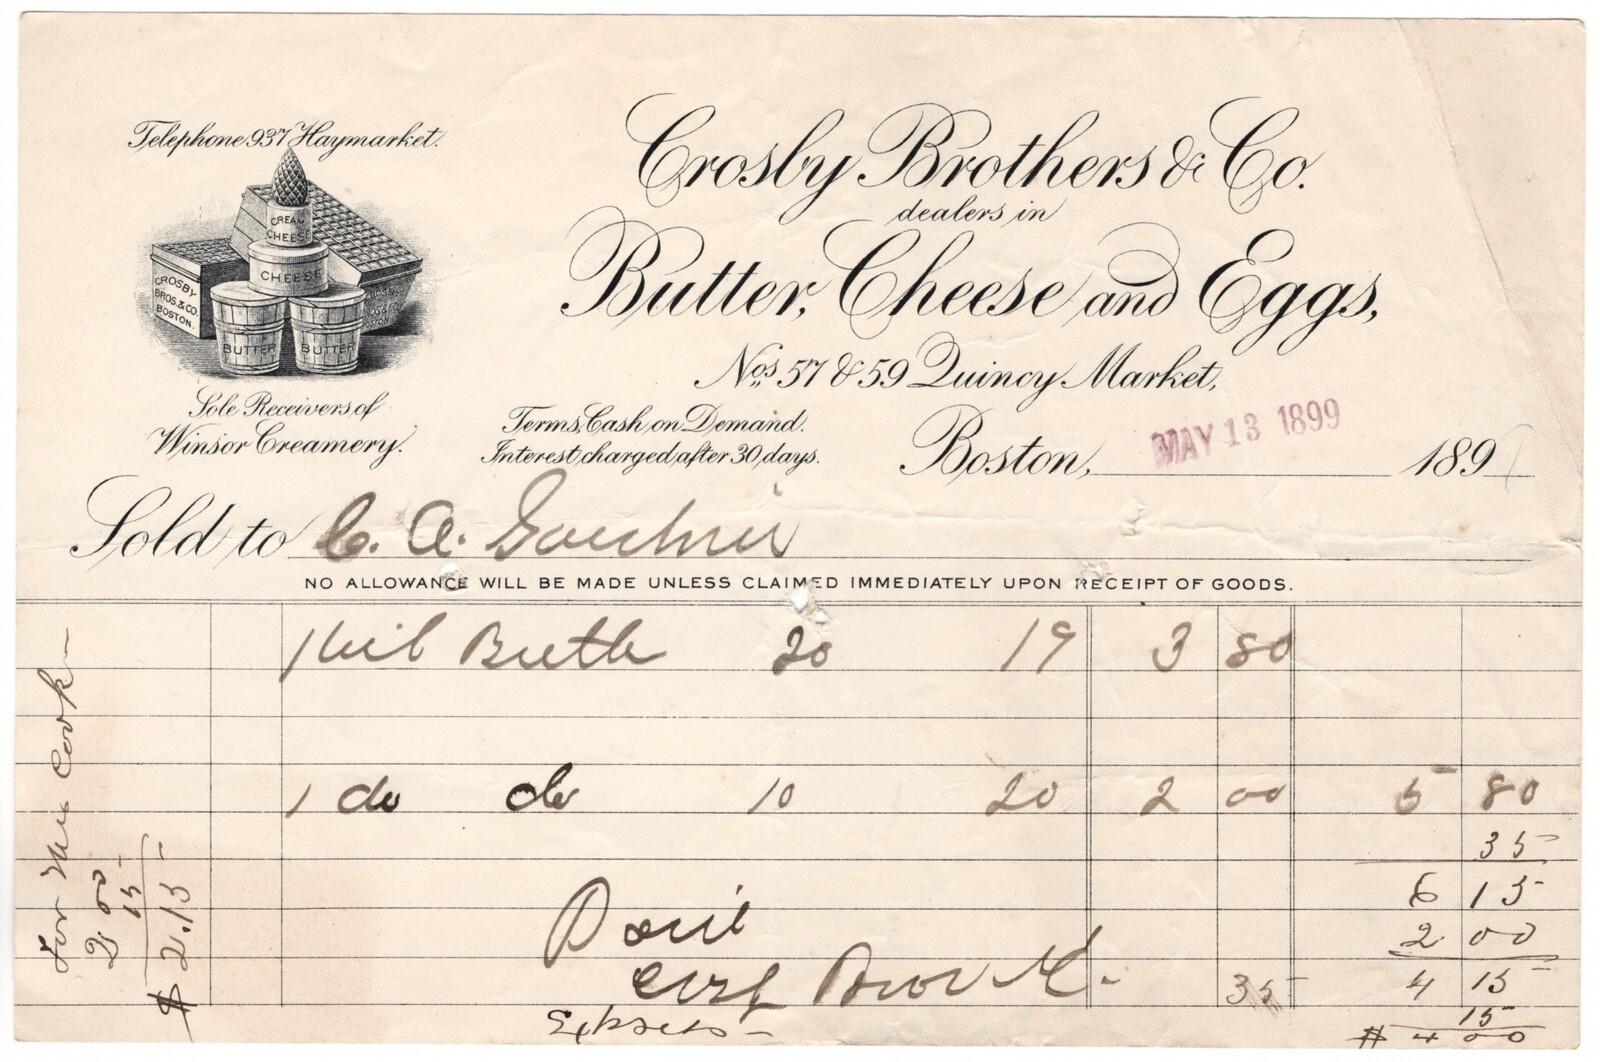 Telephone 937 Haymarket.
CREAM
CHEESE
CHEESE
CROSBY
BROS. & CO.
BOSTON.
BROS & CO
BOSTON
BUTTER
BUTTER
Sole Receivers of
Winsor Creamery.
Crosby Brothers & Co.
dealers in
Butter, Cheese and Eggs,
Nos. 57 & 59 Quincy Market,
Terms, Cash on Demand.
Interest charged after 30 days.
Boston, MAY 13 1899 189
Sold to C. A. Gardner
NO ALLOWANCE WILL BE MADE UNLESS CLAIMED IMMEDIATELY UPON RECEIPT OF GOODS.
1 20 19 3 80
1 do do 10 20 2 00 5 80
35
6 15
2 00
Paid
Crosby Bros & Co. 35 4 15
15
Express $ 4 00
For Mrs Cook
2 00
15
$ 2.15